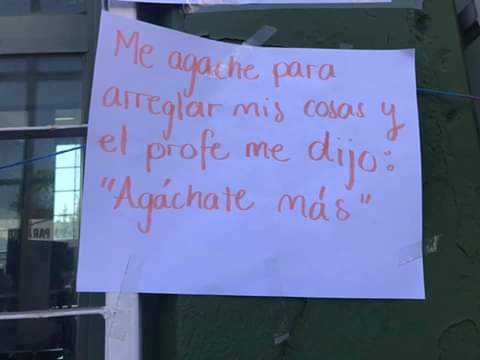 Me agache para
arreglar mis cosas y
el profe me dijo:
"Agáchate más"